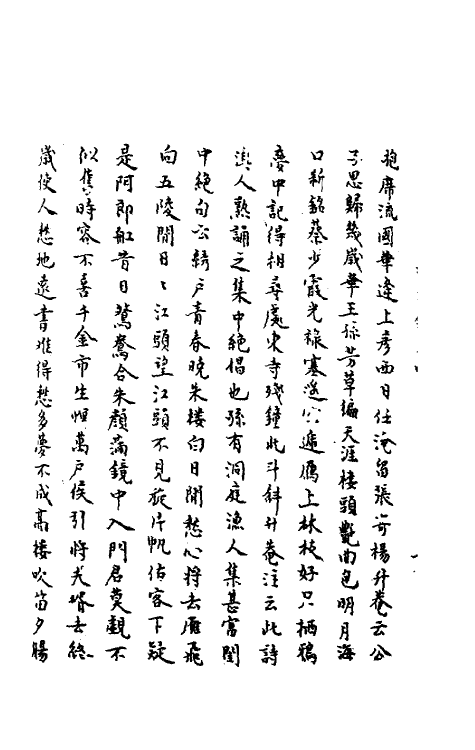 抱屏流國華逢上彥西日任淹留張寄楊升菴云公
子思歸幾歲華王孫芳草徧天涯樓頭艷曲包明月海
口新銘蔡少霞光祿塞遥空遞鴈上林枝好只栖鴉
夢中記得相尋處東寺殘鐘北斗斜升菴注云此詩
滇人熟誦之集中絕倡也孫有洞庭漁人集甚富閨
中絕句云綺戶青春晚朱樓白日閒愁心將去雁飛
向五陵間日日江頭望江頭不見旋片帆估客下疑
是阿郎船昔日鴛鴦合朱顏滿鏡中入門君莫觀不
似舊時容不喜千金市生憎萬戶侯引將夫壻去終
歲使人愁地遠書難得愁多夢不成高樓吹笛夕腸